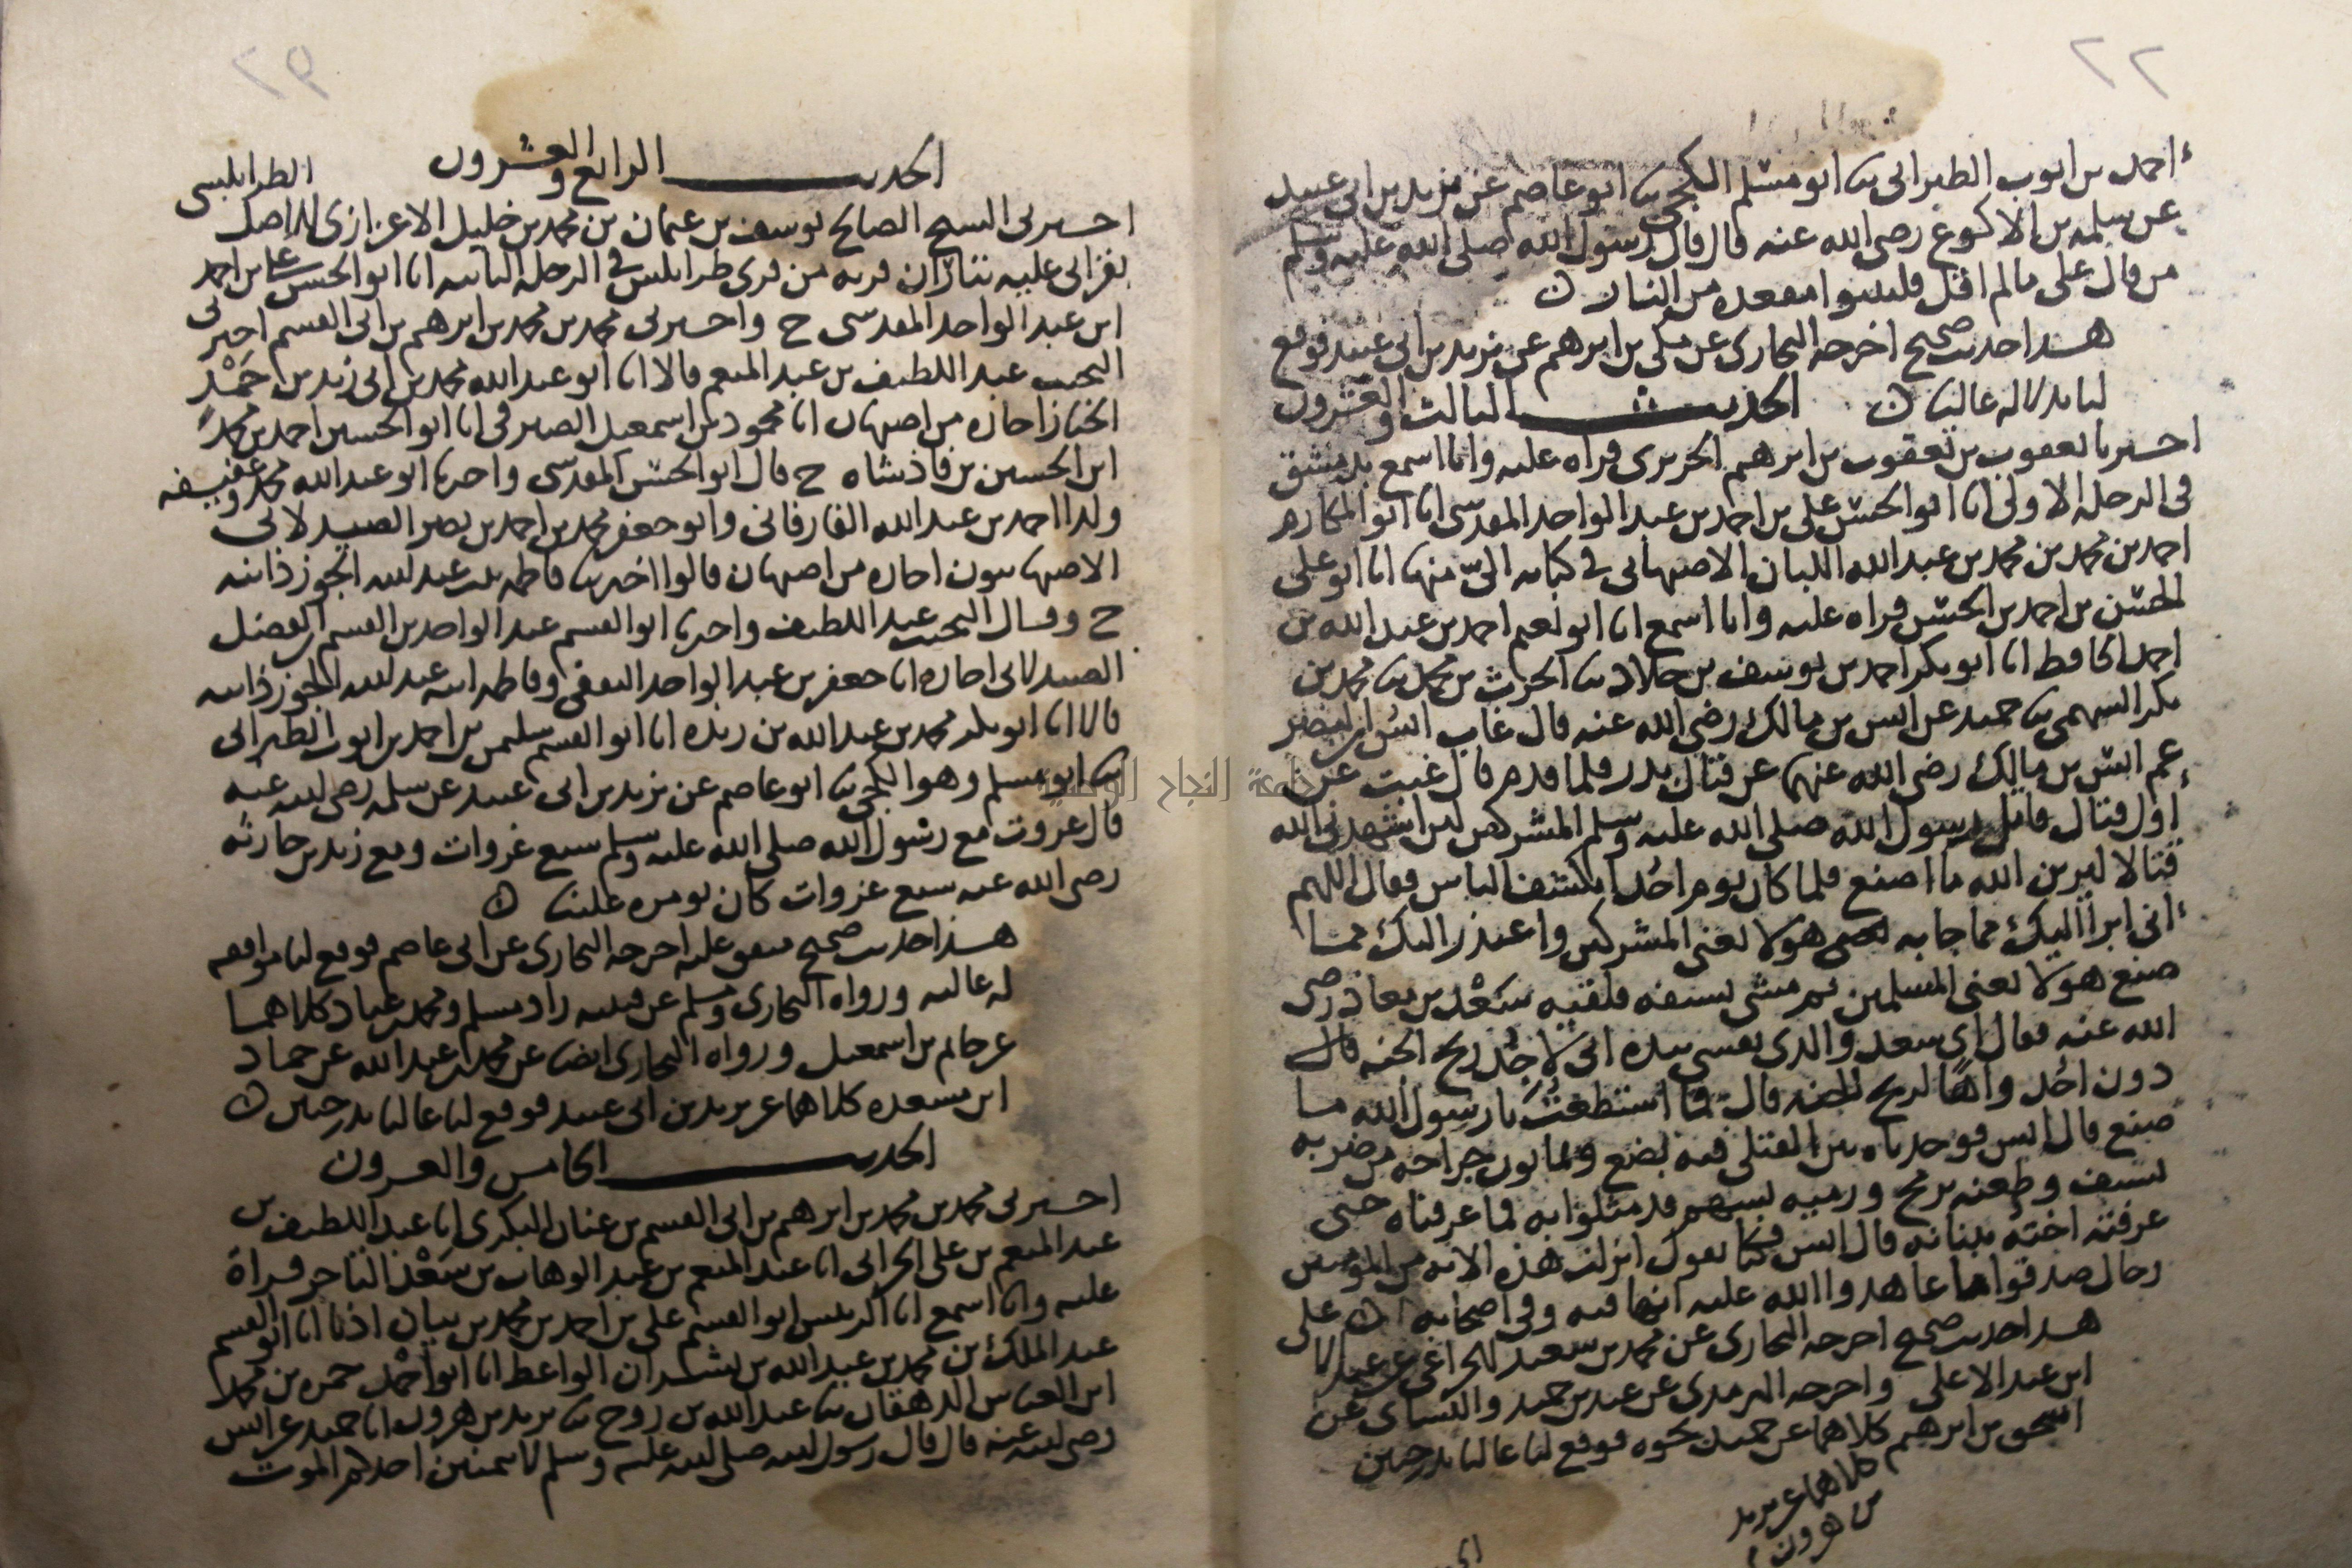 ٢٢
أحمد بن ايوب الطبراني ثنا ابو مسلم الكجي ثنا ابو عاصم عن يزيد بن ابي عبيد
عن سلمة بن الاكوع رضي الله عنه قال قال رسول الله صلى الله عليه وسلم
من قال علي ما لم اقل فليتبوا مقعده من النار
هذا حديث صحيح اخرجه البخاري عن مكي بن ابرهيم عن يزيد بن ابي عبيد فوقع
لنا بدلا له عاليا الحديث الثالث والعشرون
اخبرنا يعقوب بن يعقوب بن ابرهيم الحريري قراه عليه وانا اسمع بدمشق
في الرحلة الاولى انا ابو الحسن علي بن احمد بن عبد الواحد المقدسي انا ابو المكارم
احمد بن محمد بن محمد بن عبد الله اللبان الاصبهاني في كتابه الي منها انا ابو علي
الحسن بن احمد بن الحسن قراه عليه وانا اسمع انا ابو نعيم احمد بن عبد الله بن
احمد الحافظ انا ابو بكر احمد بن يوسف بن خلاد ثنا الحرث بن محمد ثنا محمد بن
بكر السهمي ثنا حميد عن انس بن مالك رضي الله عنه قال غاب انس بن النضر
عم انس بن مالك رضي الله عنهما عن قتال بدر فلما قدم قال غبت عن
أول قتال قاتل رسول الله صلى الله عليه وسلم المشركين لئن اشهدني الله
قتالا ليرين الله ما اصنع فلما كان يوم احد انكشف الناس فقال اللهم
أني ابرأ اليك مما جا به هولا يعني المشركين واعتذر اليك مما
صنع هولا يعني المسلمين ثم مشى بسيفه فلقيه سعد بن معاذ رضي
الله عنه فقال اي سعد والذي نفسي بيده اني لاجد ريح الجنه قال
دون احد واها لريح الجنه قال فما استطعت يا رسول الله ما
صنع قال انس فوجدناه بين القتلى فيه بضع وثمانون جراحه من ضربه
بسيف وطعنه برمح ورميه بسهم قد مثلوا به فما عرفناه حتى
عرفته اخته ببنانه قال انس فكنا نقول انزلت هذه الايه من المؤمنين
رجال صدقوا ما عاهدوا الله عليه انها فيه وفي اصحابه
هذا حديث صحيح اخرجه البخاري عن محمد بن سعيد الخزاعي عن عبد الاعلى
ابن عبد الاعلى واخرجه الترمذي عن عبد بن حميد والنساي عن
اسحق بن ابرهيم كلاهما عن حميد نحوه فوقع لنا عاليا بدرجتين
كلاهما عن يزيد
بن هرون
٩٢
الحديث الرابع والعشرون
اخبرني الشيخ الصالح يوسف بن عثمان بن محمد بن خليل الاعزازي الاصل الطرابلسي
بقراتي عليه قريه من قرى طرابلس في الرحلة الثانيه انا ابو الحسن علي بن احمد
ابن عبد الواحد المقدسي ح واخبرني محمد بن محمد بن ابرهيم بن ابي القسم اخبرني
النجيب عبد اللطيف بن عبد المنعم قالا انا ابو عبد الله محمد بن ابي زيد بن حمد
الخباز اجازه من اصبهان انا محمود بن اسمعيل الصيرفي انا ابو الحسين احمد بن محمد
ابن الحسين بن فاذشاه ح قال ابو الحسن المقدسي واخبرنا ابو عبد الله محمد وعفيفه
ولدا احمد بن عبد الله الفارفاني وابو جعفر محمد بن احمد بن نصر الصيدلاني
الاصبهانيون اجازه من اصبهان قالوا اخبرتنا فاطمه بنت عبد الله الجوزذانيه
ح وقال النجيب عبد اللطيف واخبرنا ابو القسم عبد الواحد بن القسم بن الفضل
الصيدلاني اجازه انا جعفر بن عبد الواحد الثقفي وفاطمه ابنه عبد الله الجوزذانيه
قالا انا ابو بكر محمد بن عبد الله بن ريذه انا ابو القسم سليمن بن احمد بن ايوب الطبراني
ثنا ابو مسلم وهو الكجي ثنا ابو عاصم عن يزيد بن ابي عبيد عن سلمه رضي الله عنه
قال غزوت مع رسول الله صلى الله عليه وسلم سبع غزوات ومع زيد بن حارثه
رضي الله عنه سبع غزوات كان يومره علينا
هذا حديث صحيح متفق عليه اخرجه البخاري عن ابي عاصم فوقع لنا موافقه
له عاليه ورواه البخاري ومسلم عن قتيبه زاد مسلم ومحمد بن عباد كلاهما
عن حاتم بن اسمعيل ورواه البخاري ايضا عن محمد بن عبد الله عن حماد
ابن مسعده كلاهما عن يزيد بن ابي عبيد فوقع لنا عاليا بدرجتين
الحديث الخامس والعشرون
اخبرني محمد بن محمد بن ابرهيم بن ابي القسم بن عنان البكري انا عبد اللطيف بن
عبد المنعم بن علي الحراني انا عبد المنعم بن عبد الوهاب بن سعد التاجر قراة
عليه وانا اسمع انا الرئيس ابو القسم علي بن احمد بن محمد بن بيان اذنا انا ابو القسم
عبد الملك بن محمد بن عبد الله بن بشران الواعظ انا ابو احمد حمزه بن محمد
ابن العباس الدهقان ثنا عبد الله بن روح ثنا يزيد بن هرون انا حميد عن انس
رضي الله عنه قال قال رسول الله صلى الله عليه وسلم لا يتمنين احدكم الموت
جامعة النجاح الوطنية